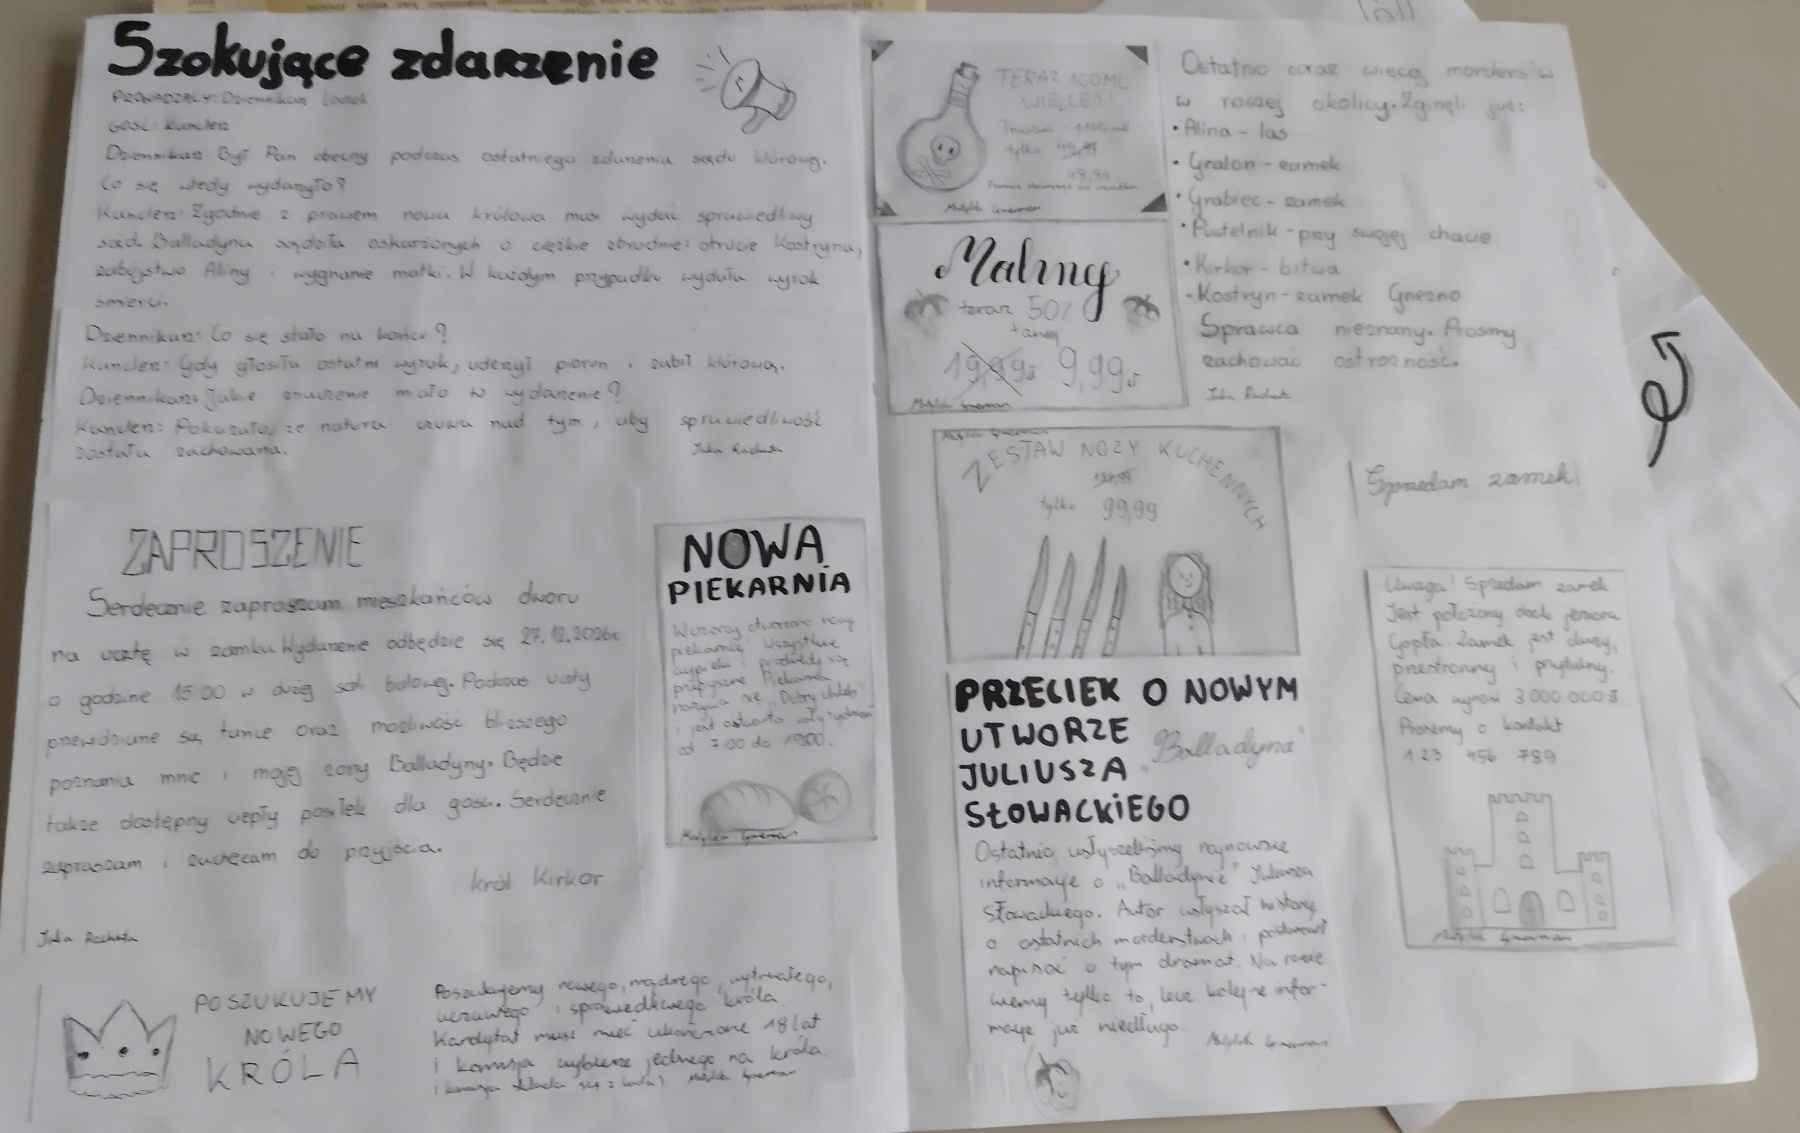 Szokujące zdarzenie
PROWADZĄCY: Dziennikarz Lolek
GOŚĆ: Kanclerz
Dziennikarz: Był Pan obecny podczas ostatniego zdarzenia sądu królowej.
Co się wtedy wydarzyło?
Kanclerz: Zgodnie z prawem nowa królowa musi wydać sprawiedliwy
sąd. Balladyna sądziła oskarżonych o ciężkie zbrodnie: otrucie Kostryna,
zabójstwo Aliny i wygnanie matki. W każdym przypadku wydała wyrok
śmierci.
Dziennikarz: Co się stało na końcu?
Kanclerz: Gdy głosiła ostatni wyrok, uderzył piorun i zabił królową.
Dziennikarz: Jakie znaczenie miało to wydarzenie?
Kanclerz: Pokazało, że natura czuwa nad tym, aby sprawiedliwość
została zachowana.
ZAPROSZENIE
Serdecznie zapraszam mieszkańców dworu
na ucztę w zamku. Wydarzenie odbędzie się 27.12.2026r.
o godzinie 15:00 w dużej sali balowej. Podczas uczty
przewidziane są tańce oraz możliwość bliższego
poznania mnie i mojej żony Balladyny. Będzie
także dostępny ciepły posiłek dla gości. Serdecznie
zapraszam i zachęcam do przyjścia.
król Kirkor
NOWA
PIEKARNIA
Wczoraj otworzono nową
piekarnię. Wszystkie
wypieki i produkty są
przepyszne. Piekarnia
nazywa się "Dobry chleb"
i jest otwarta cały tydzień
od 7:00 do 19:00.
POSZUKUJEMY
NOWEGO
KRÓLA
Poszukujemy nowego, mądrego, wytrwałego,
uczciwego i sprawiedliwego króla.
Kandytat musi mieć ukończone 18 lat
i komisja wybierze jednego na króla.
(komisja składa się z ludu)
TERAZ 100ML
WIĘCEJ!
Trucizna - 1100 ml
tylko 49,99
48,99
Maliny
teraz 50%
taniej
19,99zł 9,99zł
Ostatnio coraz więcej morderstw
w naszej okolicy. Zginęli już:
• Alina - las
• Gralon - zamek
• Grabiec - zamek
• Pustelnik - przy swojej chacie
• Kirkor - bitwa
• Kostryn - zamek Gniezno
Sprawca nieznany. Prosimy
zachować ostrożność.
ZESTAW NOŻY KUCHENNYCH
tylko 99,99
PRZECIEK O NOWYM
UTWORZE
JULIUSZA
SŁOWACKIEGO
"Balladyna"
Ostatnio usłyszeliśmy najnowsze
informacje o „Balladynie" Juliusza
Słowackiego. Autor usłyszał historię
o ostatnich morderstwach i postanowił
napisać o tym dramat. Na razie
wiemy tylko to, lecz kolejne infor-
macje już niedługo.
Sprzedam zamek
Uwaga! Sprzedam zamek
Jest położony obok jeziora
Gopła. Zamek jest duży,
przestronny i przytulny.
Cena wynosi 3 000 000 zł.
Prosimy o kontakt
123 456 789